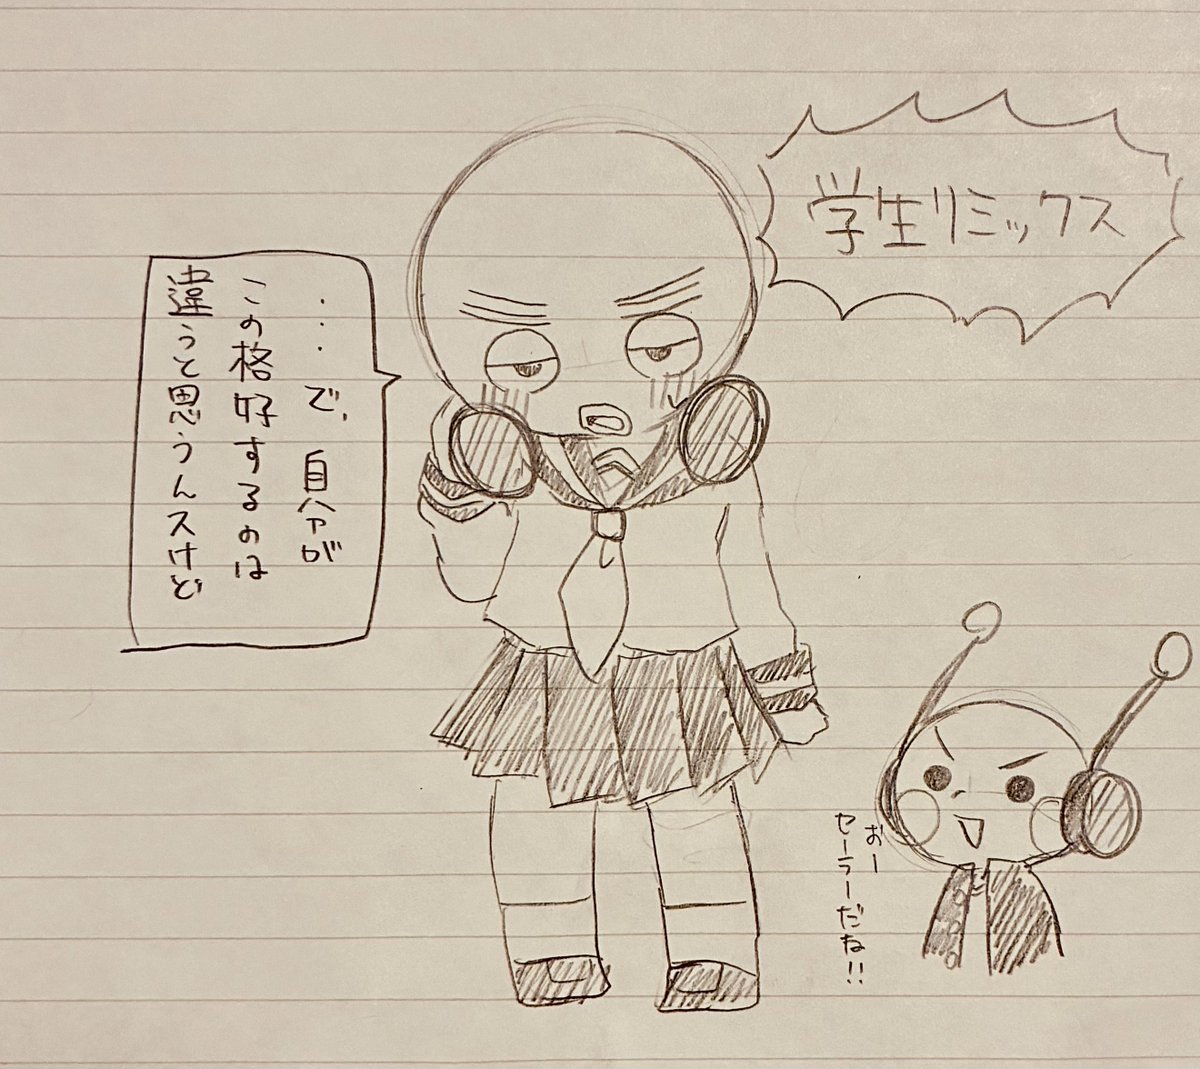 学生リミックス
・・・で、自分が
この格好するのは
違うと思うんスけど
おー
セーラーだね!!